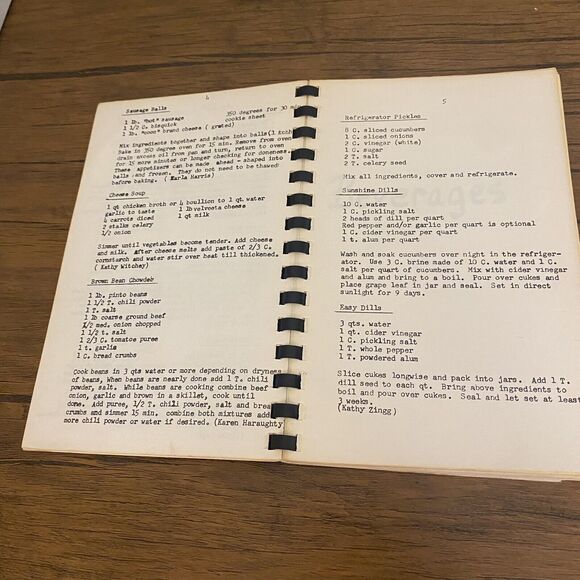 4
Sausage Balls
350 degrees for 30 min
1 lb. "hot" sausage cookie sheet
1 1/2 C. bisquick
1 lb. "coon" brand cheese ( grated)
Mix ingredients together and shape into balls(1 inch
Bake in 350 degree oven for 15 min. Remove from oven
drain excess oil from pan and turn, return to oven
for 15 more minutes or longer checking for doneness.
These appetizers can be made ahead - shaped into
balls and frozen. They do not need to be thawed
before baking. ( Marla Harris)
Cheese Soup
1 qt chicken broth or 4 boullion to 1 qt. water
garlic to taste 1 lb velveeta cheese
4 carrots diced 1 qt milk
2 stalks celery
1/2 onion
Simmer until vegetables become tender. Add cheese
and milk. After cheese melts add paste of 2/3 C.
cornstarch and water stir over heat till thickened.
( Kathy Witchey)
Brown Bean Chowder
1 lb. pinto beans
1 1/2 T. chili powder
1 T. salt
1 lb coarse ground beef
1/2 med. onion chopped
1 1/2 t. salt
1 2/3 C. tomatoe puree
1 t. garlic
1 C. bread crumbs
Cook beans in 3 qts water or more depending on dryness
of beans, When beans are nearly done add 1 T. chili
powder, salt. While beans are cooking combine beef
onion, garlic and brown in a skillet, cook until
done. Add puree, 1/2 T. chili powder, salt and bread
crumbs and simmer 15 min. combine both mixtures add
more chili powder or water if desired. (Karen Haraughty
5
Refrigerator Pickles
8 C. sliced cucumbers
1 C. sliced onions
2 C. vinegar (white)
1 C. sugar
2 T. salt
2 T. celery seed
Mix all ingredients, cover and refrigerate.
Sunshine Dills
10 C. water
1 C. pickling salt
2 heads of dill per quart
Red pepper and/or garlic per quart is optional
1 C. cider vinegar per quart
1 t. alum per quart
Wash and soak cucumbers over night in the refriger-
ator. Use 3 C. brine made of 10 C. water and 1 C.
salt per quart of cucumbers. Mix with cider vinegar
and alum and bring to a boil. Pour over cukes and
place grape leaf in jar and seal. Set in direct
sunlight for 9 days.
Easy Dills
3 qts. water
1 qt. cider vinegar
1 C. pickling salt
1 T. whole pepper
1 T. powdered alum
Slice cukes longwise and pack into jars. Add 1 T.
dill seed to each qt. Bring above ingredients to
boil and pour over cukes. Seal and let set at least
3 weeks.
(Kathy Zingg)